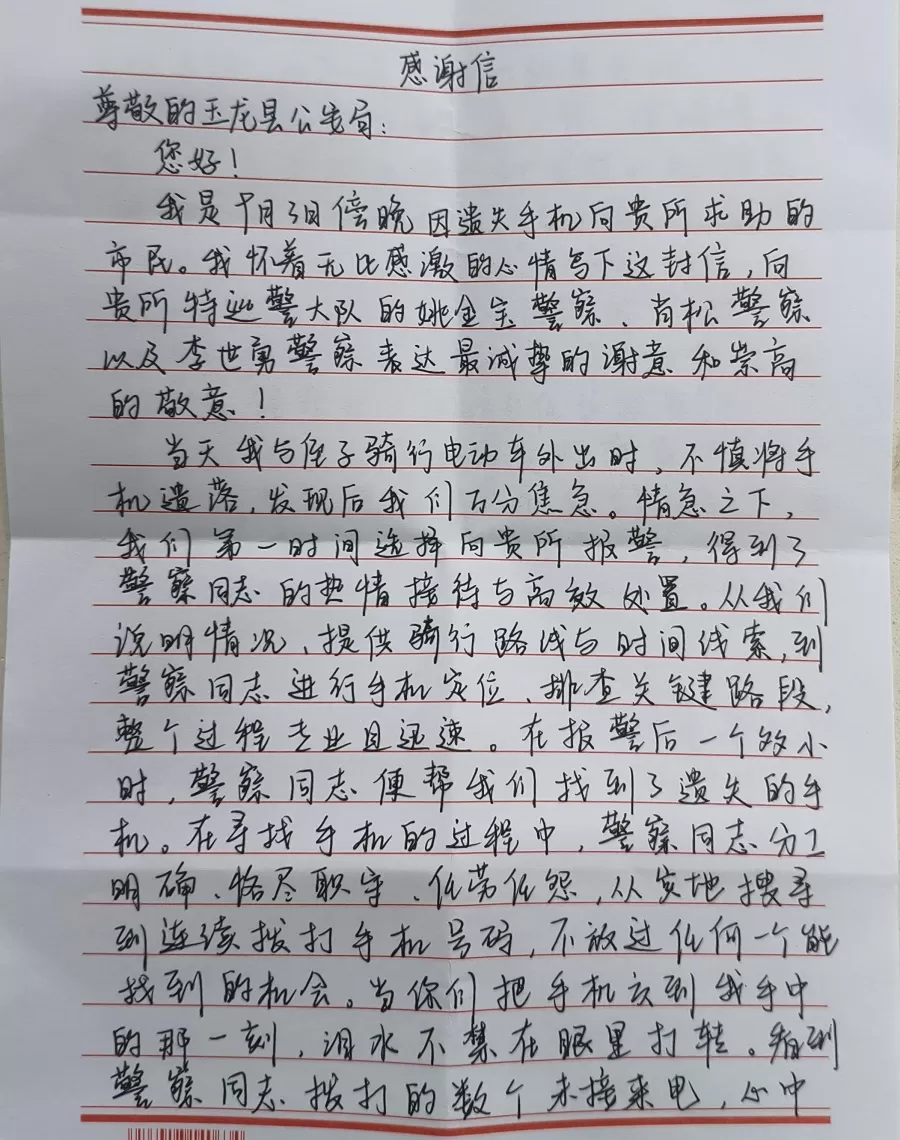 感谢信
尊敬的玉龙县公安局：
您好！
我是十月3日傍晚因遗失手机向贵所求助的
市民。我怀着无比感激的心情写下这封信，向
贵所特巡警大队的姚金宝警察、肖松警察
以及李世勇警察表达最诚挚的谢意和崇高
的敬意！
当天我与侄子骑行电动车外出时，不慎将手
机遗落，发现后我们万分焦急。情急之下，
我们第一时间选择向贵所报警，得到了
警察同志的热情接待与高效处置。从我们
说明情况、提供骑行路线与时间线索，到
警察同志进行手机定位、排查关键路段，
整个过程专业且迅速。在报警后一个多小
时，警察同志便帮我们找到了遗失的手
机。在寻找手机的过程中，警察同志分工
明确、恪尽职守、任劳任怨，从实地搜寻
到连续拨打手机号码，不放过任何一个能
找到的机会。当你们把手机交到我手中
的那一刻，泪水不禁在眼里打转。看到
警察同志拨打的数个未接来电，心中